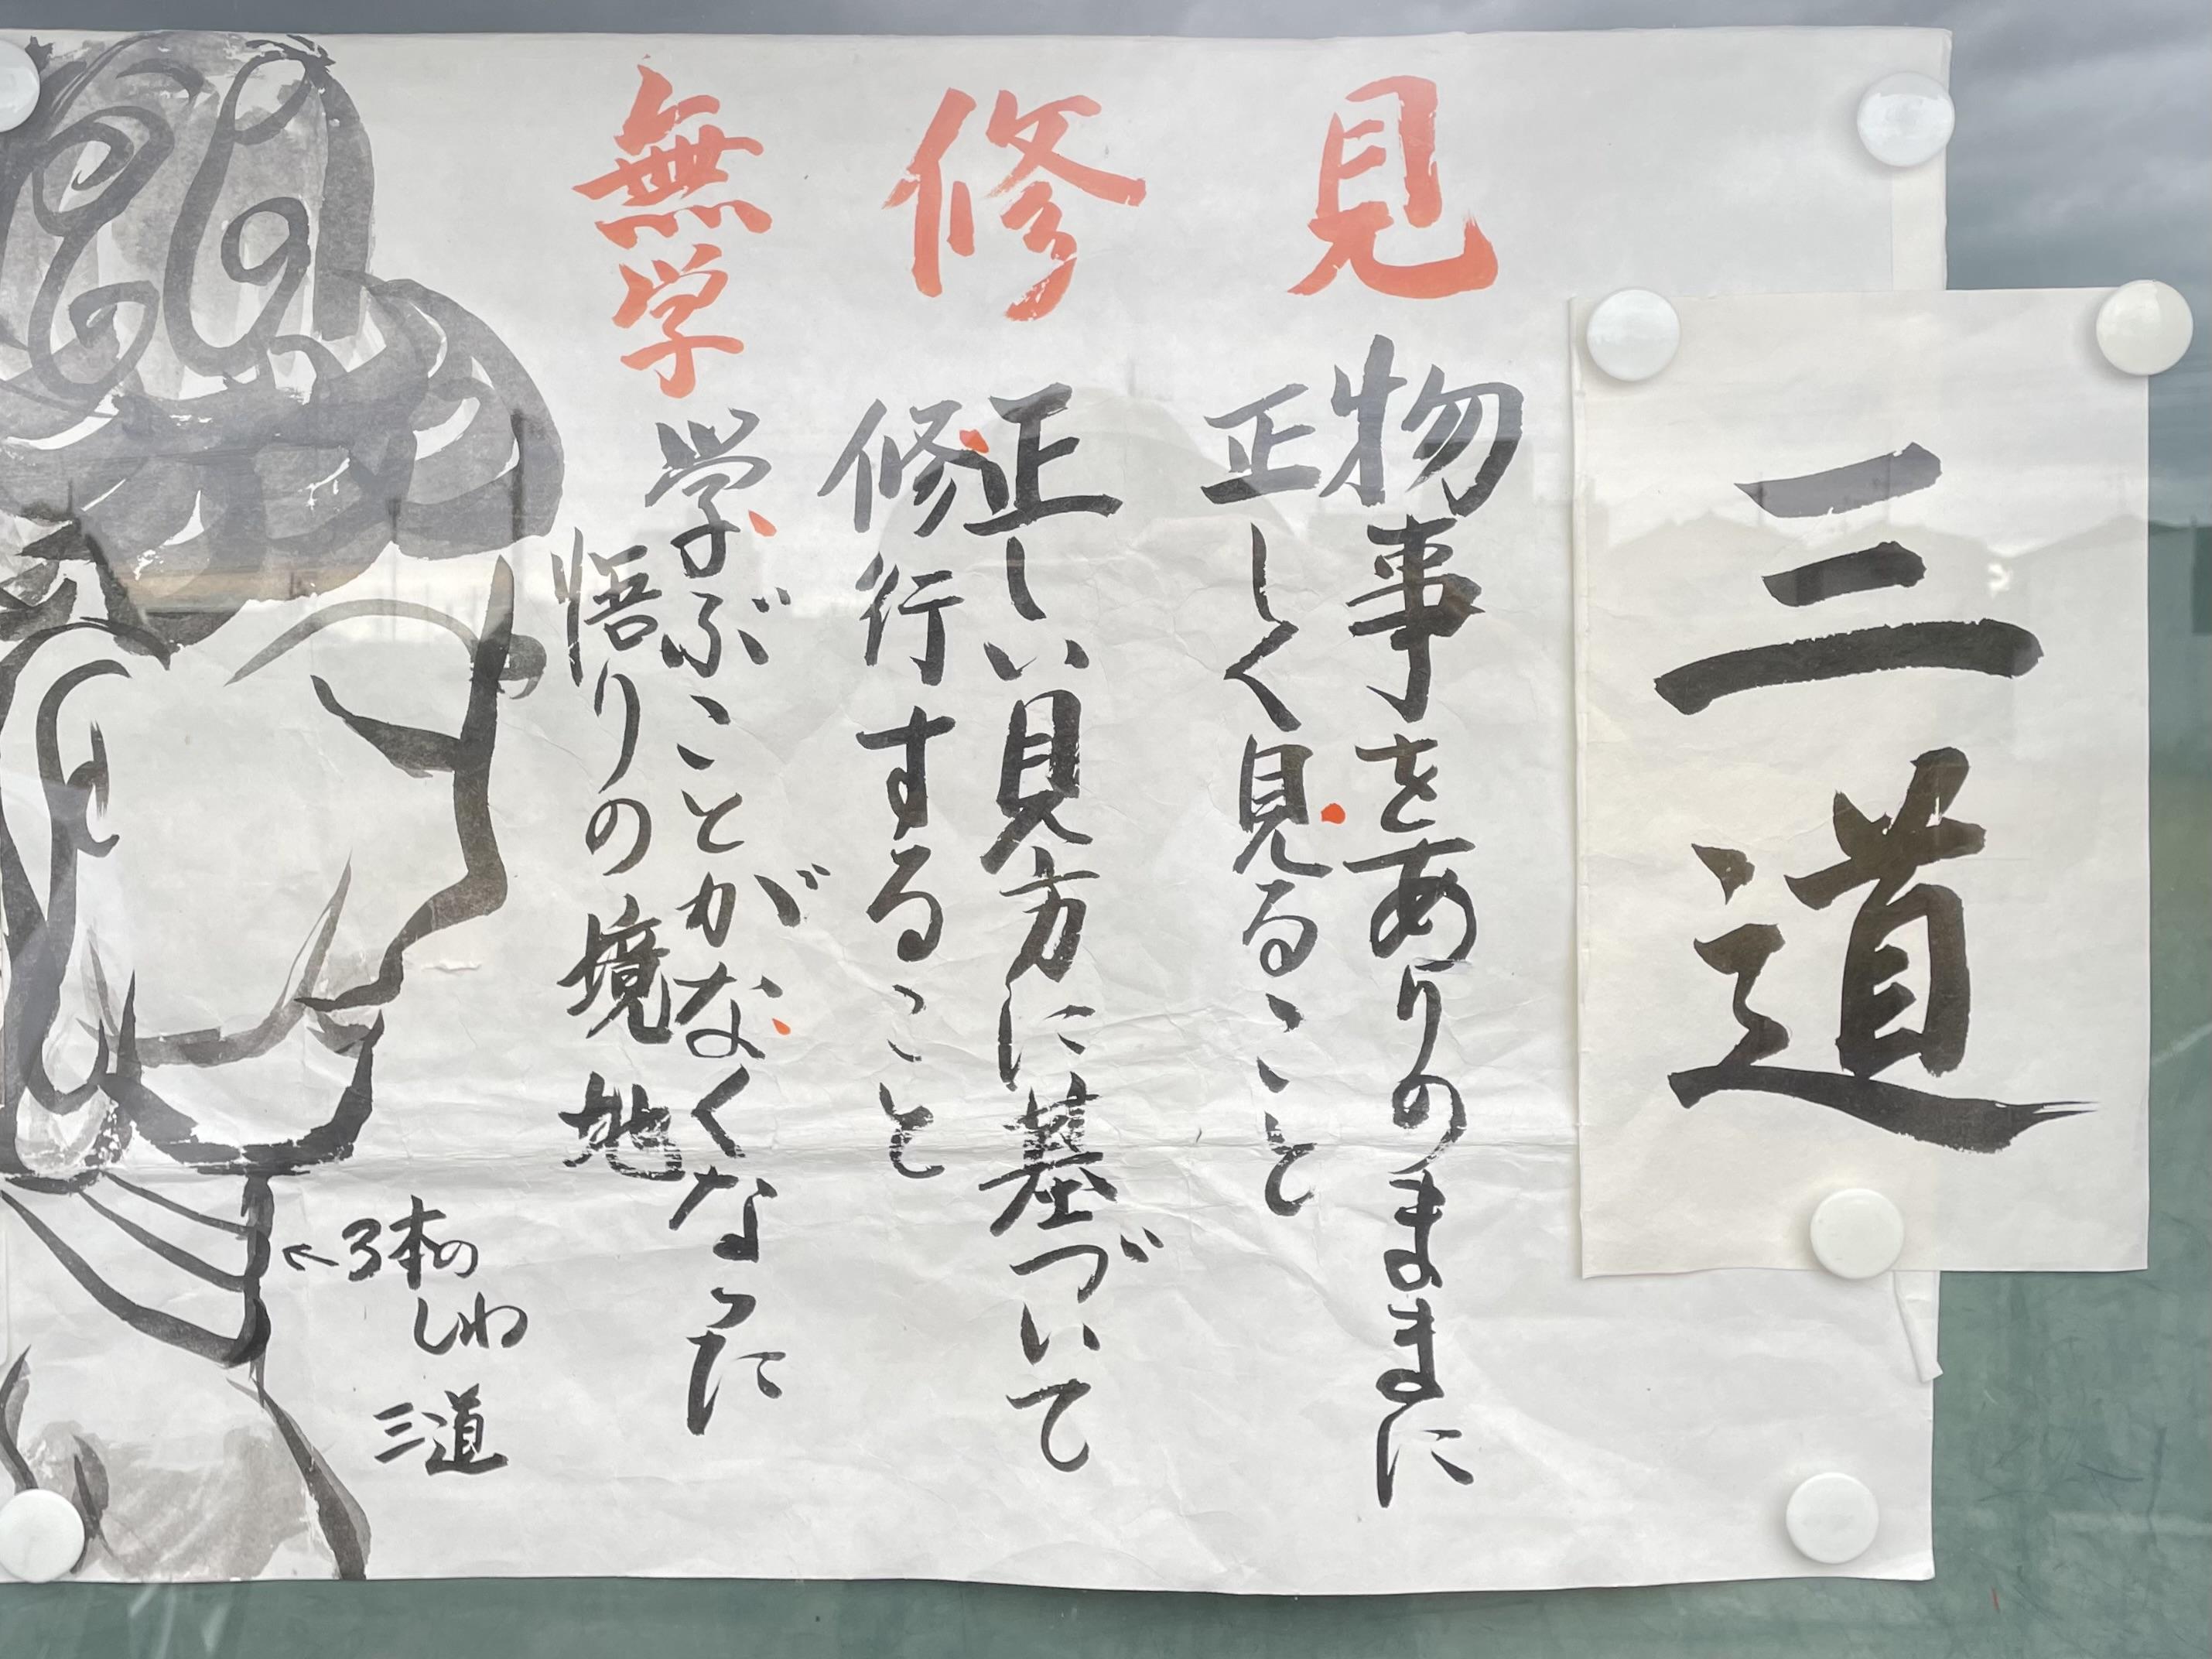 三道
見
物事をありのままに
正しく見ること
修
正しい見方に基づいて
修行すること
無学
学ぶことがなくなった
悟りの境地
←3本の
しわ
三道